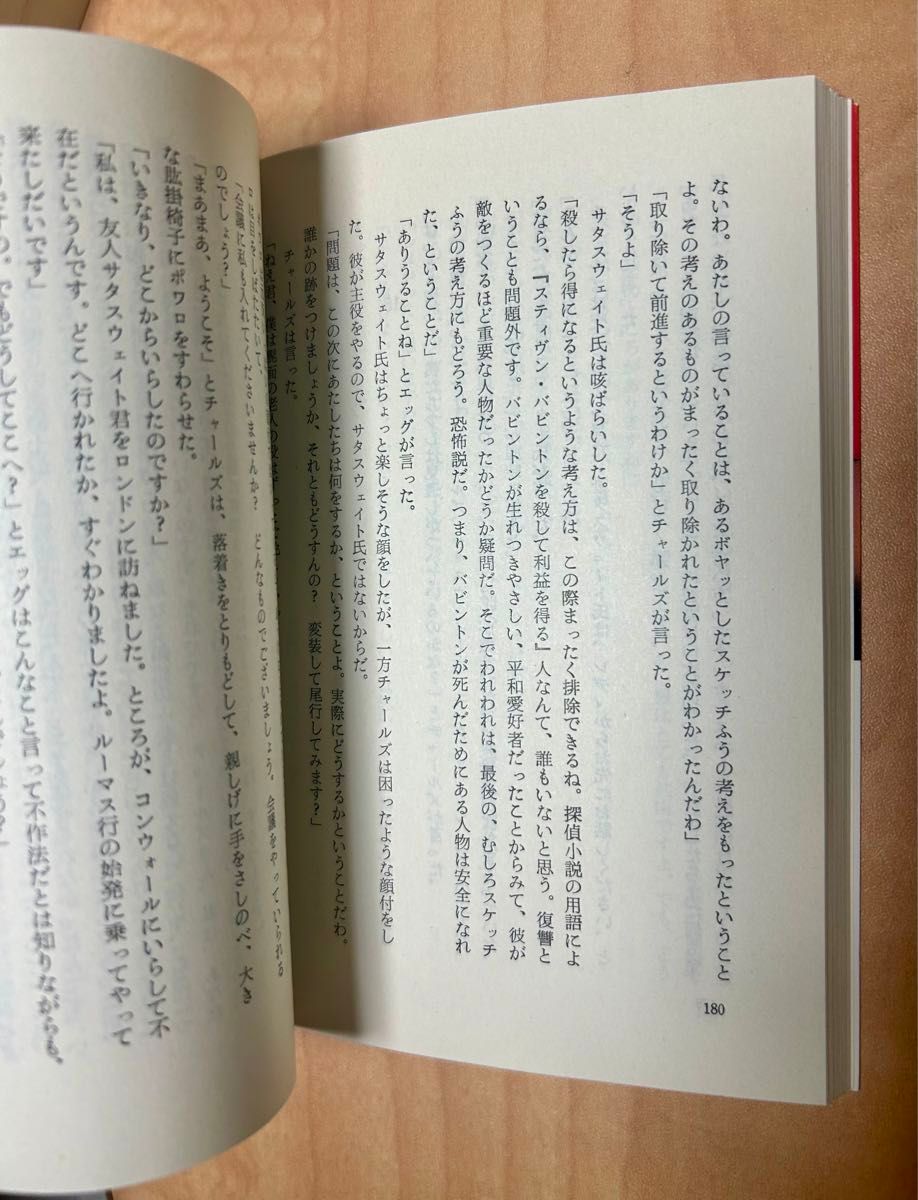 ないわ。あたしの言っていることは、あるボヤッとしたスケッチふうの考えをもったということ
よ。その考えのあるものがまったく取り除かれたということがわかったんだわ」
「取り除いて前進するというわけか」とチャールズが言った。
「そうよ」
サタスウェイト氏は咳ばらいした。
「殺したら得になるというような考え方は、この際まったく排除できるね。探偵小説の用語によ
るなら、『スティヴン・バビントンを殺して利益を得る』人なんて、誰もいないと思う。復讐と
いうことも問題外です。バビントンが生れつきやさしい、平和愛好者だったことからみて、彼が
敵をつくるほど重要な人物だったかどうか疑問だ。そこでわれわれは、最後の、むしろスケッチ
ふうの考え方にもどろう。恐怖説だ。つまり、バビントンが死んだためにある人物は安全になれ
た、ということだ」
「ありうることね」とエッグが言った。
サタスウェイト氏はちょっと楽しそうな顔をしたが、一方チャールズは困ったような顔付をし
た。彼が主役をやるので、サタスウェイト氏ではないからだ。
「問題は、この次にあたしたちは何をするか、ということよ。実際にどうするかということだわ。
誰かの跡をつけましょうか、それともどうすんの？　変装して尾行してみます？」
チャールズは言った。
「ねえ君、僕は
180
をしばたたいて、
「会議に私も入れてくださいませんか？　どんなものでございましょう。会議をやっていられる
のでしょう？」
「まあまあ、ようこそ」とチャールズは、落着きをとりもどして、親しげに手をさしのべ、大き
な肱掛椅子にポワロをすわらせた。
「いきなり、どこからいらしたのですか？」
「私は、友人サタスウェイト君をロンドンに訪ねました。ところが、コンウォールにいらして不
在だというんです。どこへ行かれたか、すぐわかりましたよ。ルーマス行の始発に乗ってやって
来たしだいです」
でもどうしてここへ？」とエッグはこんなこと言って不作法だとは知りながらも、